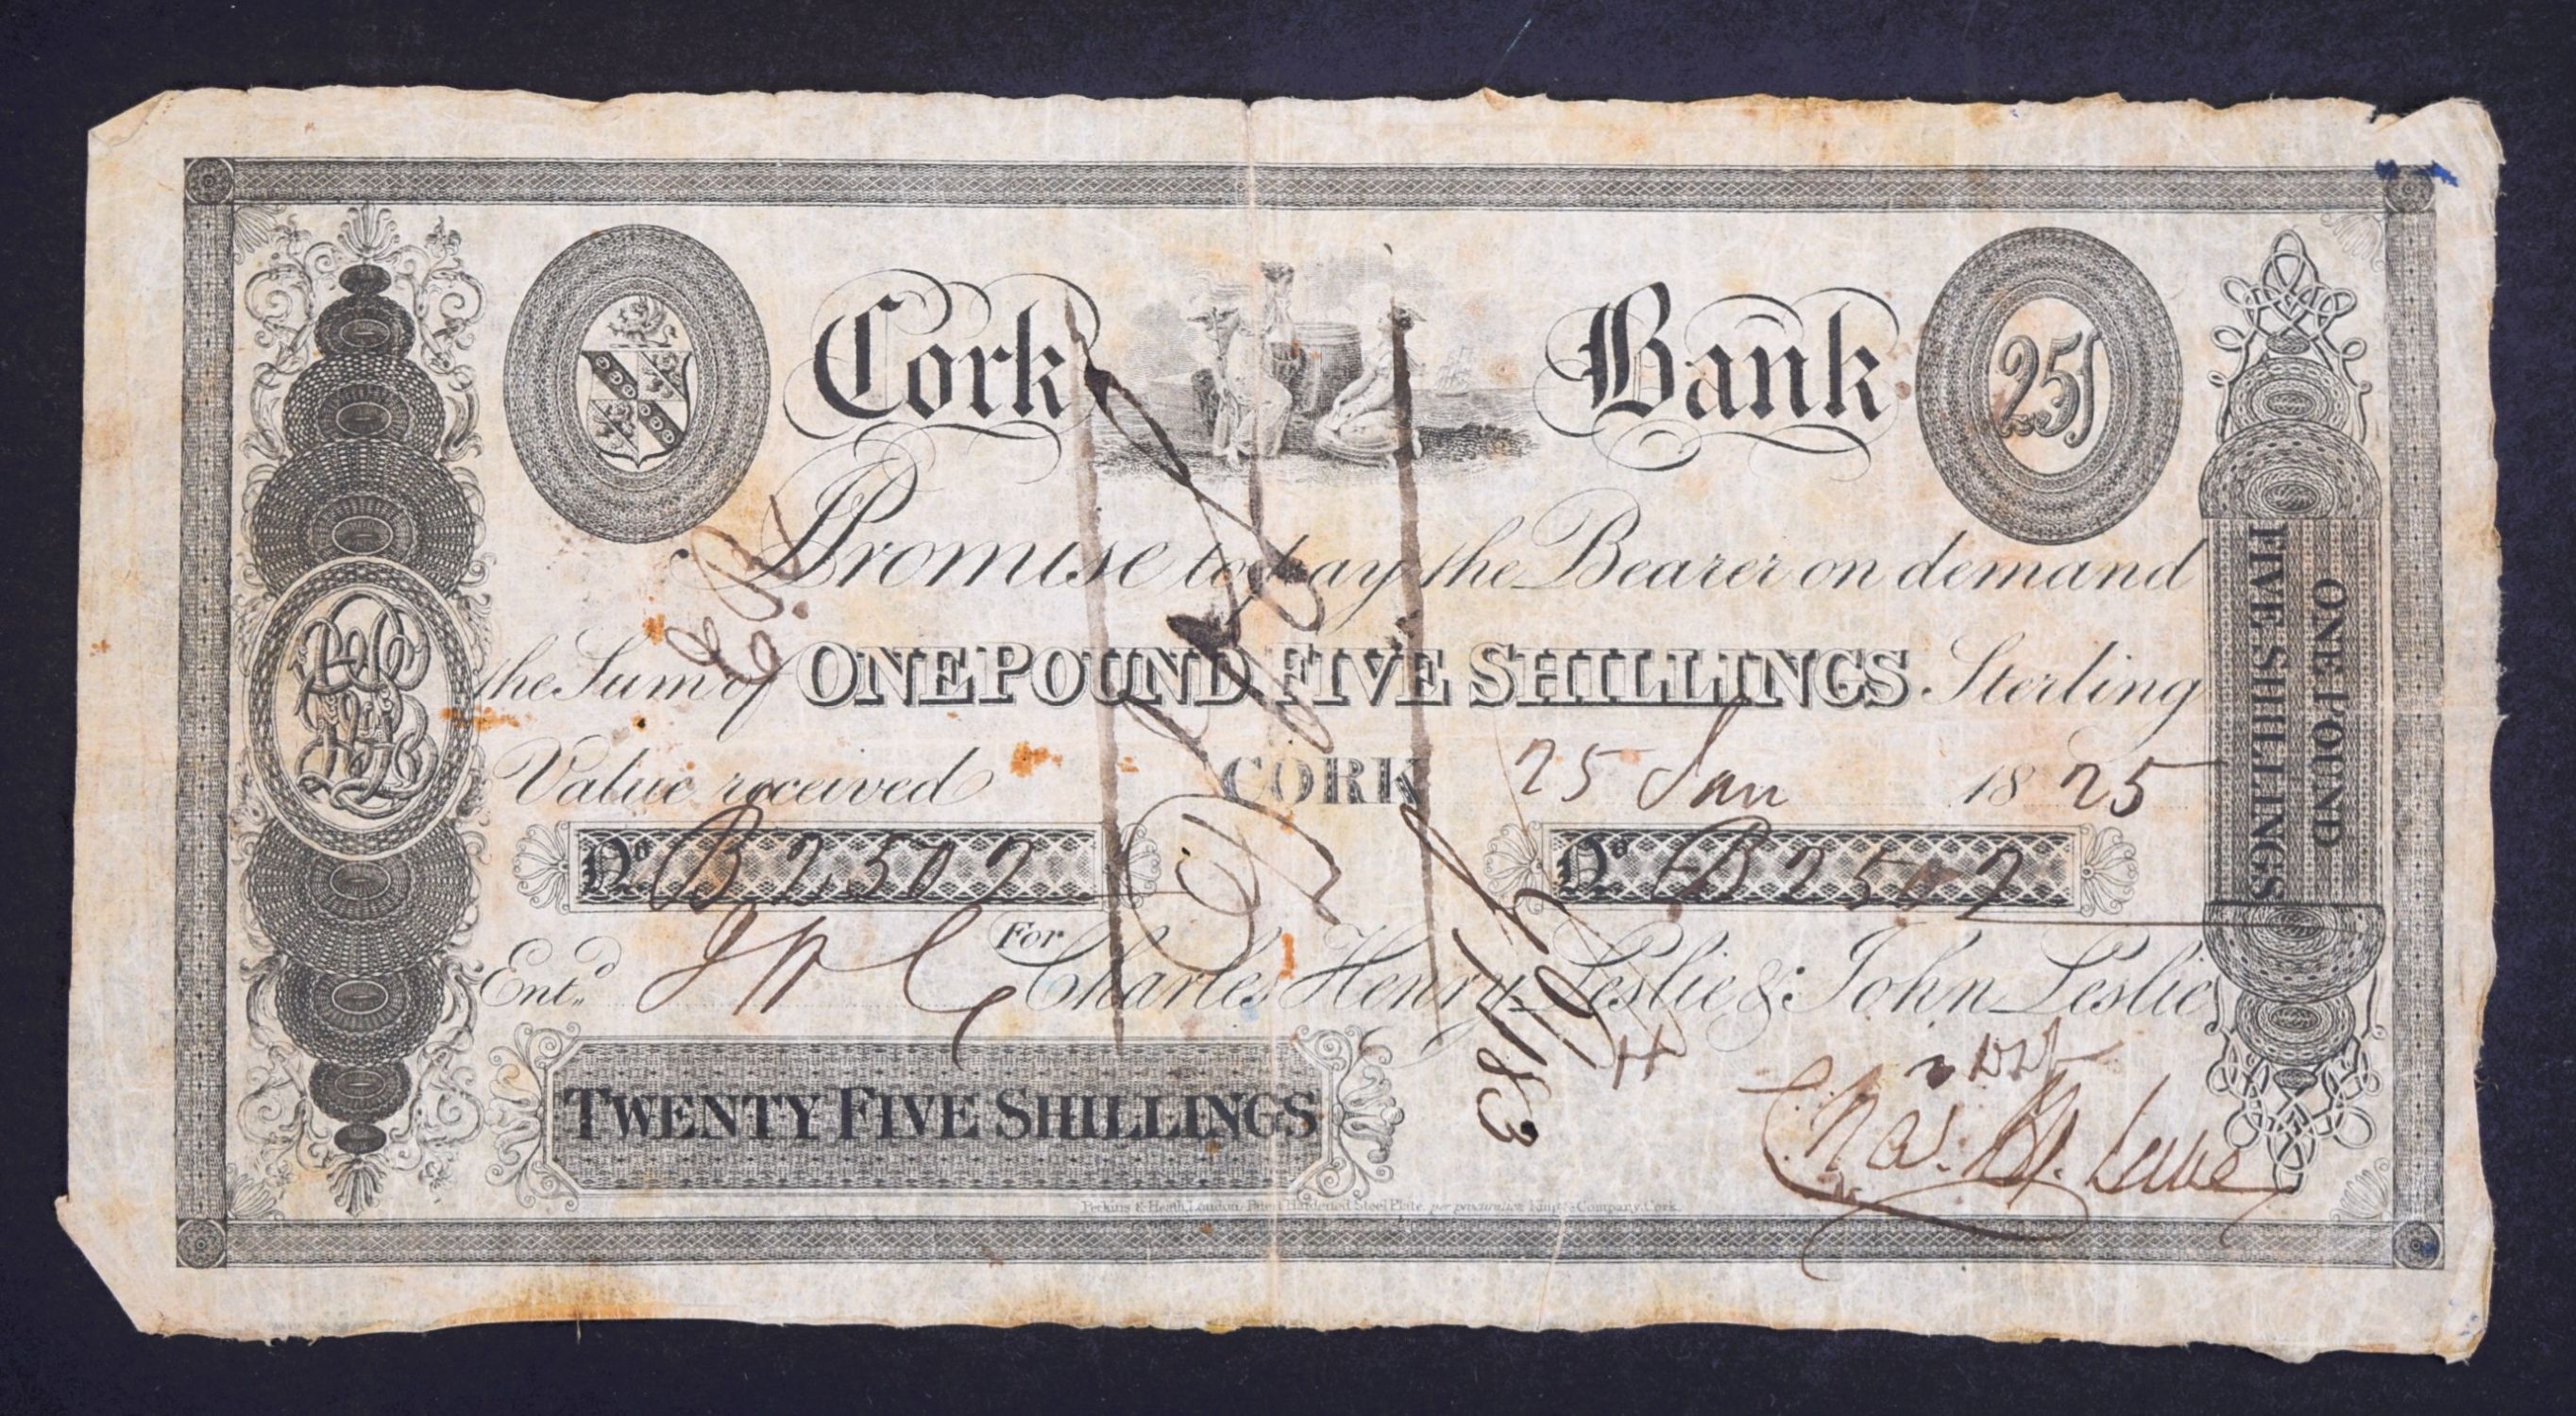 Cork Bank
25s
I Promise to pay the Bearer on demand
the Sum of ONE POUND FIVE SHILLINGS Sterling
Value received CORK 25 Jan 1825
No B2502 No B2502
Entd For Charles Henry Leslie & John Leslie
TWENTY FIVE SHILLINGS
Chas. H. Leslie
Perkins & Heath, London, Patent Hardened Steel Plate, per procuration King & Company, Cork.
ONE POUND
FIVE SHILLINGS